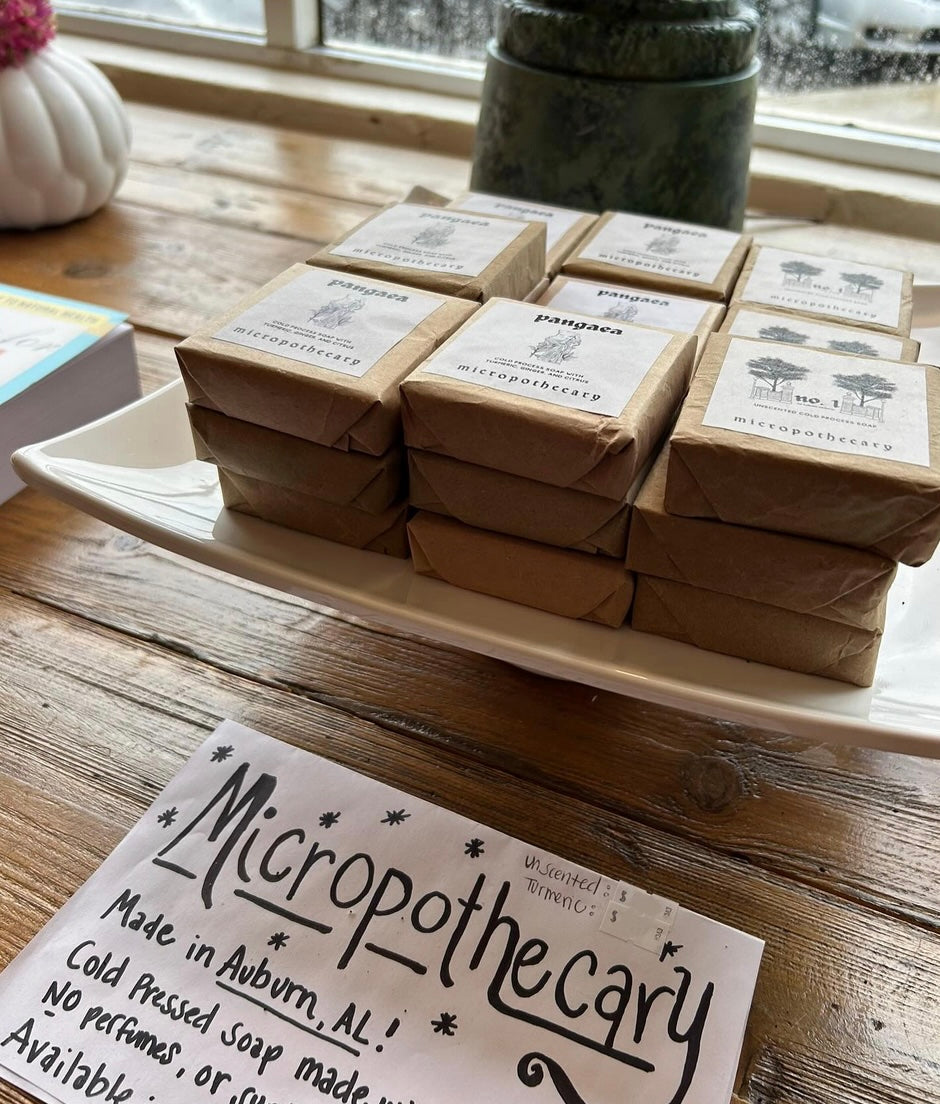 TO NATURAL HEALTH
pangaea
pangaea
micropothecary
pangaea
micropothecary
no. 1
micropothecary
pangaea
COLD PROCESS SOAP WITH
TURMERIC, GINGER, AND CITRUS
micropothecary
pangaea
pangaea
COLD PROCESS SOAP WITH
TURMERIC, GINGER, AND CITRUS
micropothecary
no. 1
UNSCENTED COLD PROCESS SOAP
micropothecary
Micropothecary
unscented: $
Turmeric: $
Made in Auburn, AL!
Cold Pressed Soap made
No perfumes, or
Available: